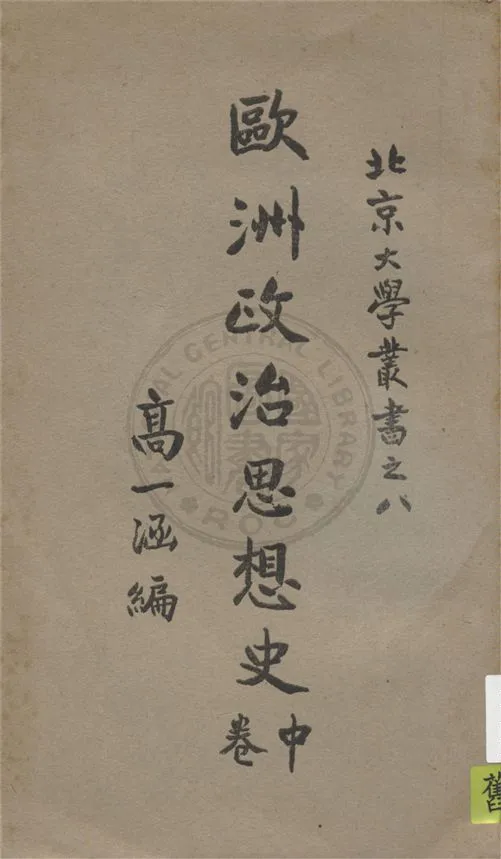 北京大學叢書之八
歐洲政治思想史
中卷
高一涵編
NATIONAL CENTRAL LIBRARY
ROC
舊